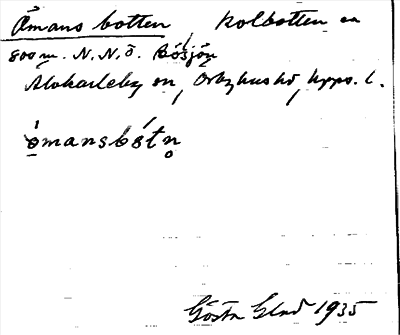 Åmans botten, Kolbotten ca
800 m. N.N.Ö. Bösjön
Älvkarleby sn, Örbyhus hd, Upps. l.
ómansbótn̥
Gösta Glad 1935